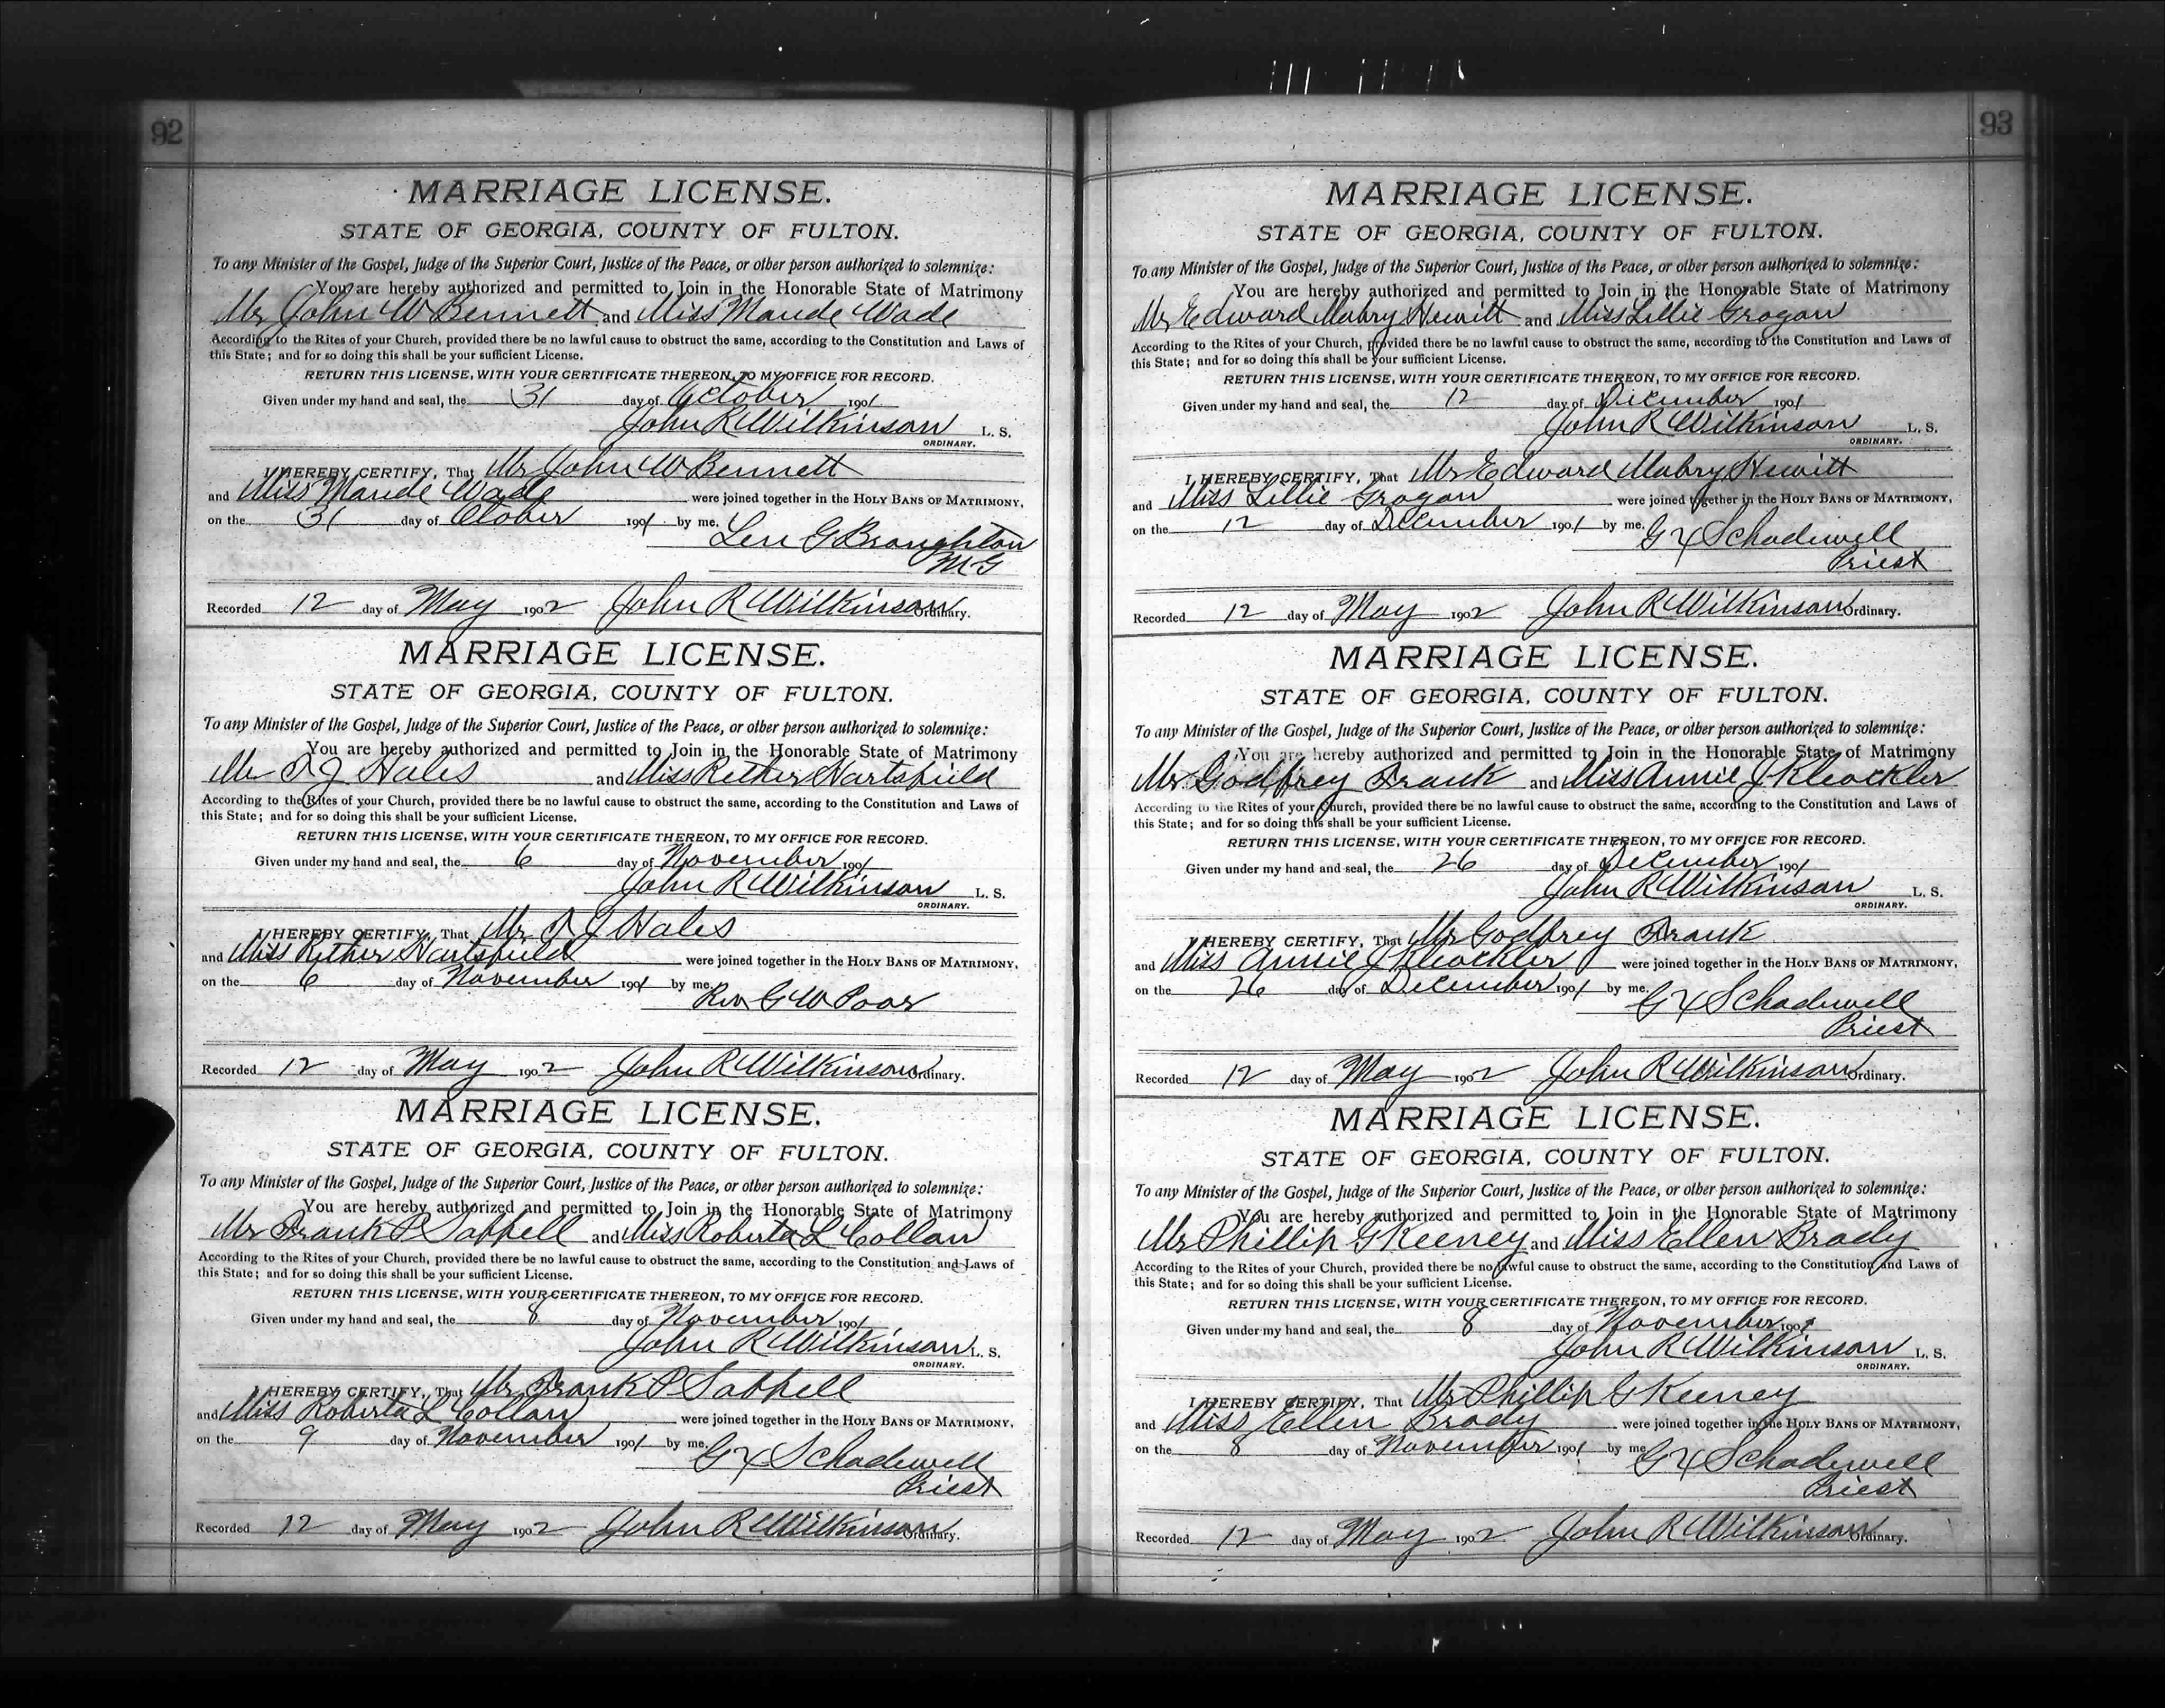 92
MARRIAGE LICENSE.
STATE OF GEORGIA, COUNTY OF FULTON.
To any Minister of the Gospel, Judge of the Superior Court, Justice of the Peace, or other person authorized to solemnize:
You are hereby authorized and permitted to Join in the Honorable State of Matrimony
Mr John W Bennett and Miss Maude Wade
According to the Rites of your Church, provided there be no lawful cause to obstruct the same, according to the Constitution and Laws of
this State; and for so doing this shall be your sufficient License.
RETURN THIS LICENSE, WITH YOUR CERTIFICATE THEREON, TO MY OFFICE FOR RECORD.
Given under my hand and seal, the 31 day of October 1901
John R Wilkinson L. S.
ORDINARY.
I HEREBY CERTIFY, That Mr John W Bennett
and Miss Maude Wade were joined together in the HOLY BANS OF MATRIMONY,
on the 31 day of October 1901 by me.
Len G Broughton
M G
Recorded 12 day of May 1902 John R Wilkinson Ordinary.
MARRIAGE LICENSE.
STATE OF GEORGIA, COUNTY OF FULTON.
To any Minister of the Gospel, Judge of the Superior Court, Justice of the Peace, or other person authorized to solemnize:
You are hereby authorized and permitted to Join in the Honorable State of Matrimony
Mr J Hales and Miss Rether Hartsfield
According to the Rites of your Church, provided there be no lawful cause to obstruct the same, according to the Constitution and Laws of
this State; and for so doing this shall be your sufficient License.
RETURN THIS LICENSE, WITH YOUR CERTIFICATE THEREON, TO MY OFFICE FOR RECORD.
Given under my hand and seal, the 6 day of November 1901
John R Wilkinson L. S.
ORDINARY.
I HEREBY CERTIFY, That Mr J Hales
and Miss Rether Hartsfield were joined together in the HOLY BANS OF MATRIMONY,
on the 6 day of November 1901 by me.
Rev G W Poor
Recorded 12 day of May 1902 John R Wilkinson Ordinary.
MARRIAGE LICENSE.
STATE OF GEORGIA, COUNTY OF FULTON.
To any Minister of the Gospel, Judge of the Superior Court, Justice of the Peace, or other person authorized to solemnize:
You are hereby authorized and permitted to Join in the Honorable State of Matrimony
Mr Frank P and Miss Roberta L Collan
According to the Rites of your Church, provided there be no lawful cause to obstruct the same, according to the Constitution and Laws of
this State; and for so doing this shall be your sufficient License.
RETURN THIS LICENSE, WITH YOUR CERTIFICATE THEREON, TO MY OFFICE FOR RECORD.
Given under my hand and seal, the 8 day of November 1901
John R Wilkinson L. S.
ORDINARY.
I HEREBY CERTIFY, That Mr Frank P
and Miss Roberta L Collan were joined together in the HOLY BANS OF MATRIMONY,
on the 9 day of November 1901 by me.
G X Schadewell
Priest
Recorded 12 day of May 1902 John R Wilkinson Ordinary.
93
MARRIAGE LICENSE.
STATE OF GEORGIA, COUNTY OF FULTON.
To any Minister of the Gospel, Judge of the Superior Court, Justice of the Peace, or other person authorized to solemnize:
You are hereby authorized and permitted to Join in the Honorable State of Matrimony
Mr Edward Mabry Hewitt and Miss Lillie Grogan
According to the Rites of your Church, provided there be no lawful cause to obstruct the same, according to the Constitution and Laws of
this State; and for so doing this shall be your sufficient License.
RETURN THIS LICENSE, WITH YOUR CERTIFICATE THEREON, TO MY OFFICE FOR RECORD.
Given under my hand and seal, the 12 day of December 1901
John R Wilkinson L. S.
ORDINARY.
I HEREBY CERTIFY, That Mr Edward Mabry Hewitt
and Miss Lillie Grogan were joined together in the HOLY BANS OF MATRIMONY,
on the 12 day of December 1901 by me.
G X Schadewell
Priest
Recorded 12 day of May 1902 John R Wilkinson Ordinary.
MARRIAGE LICENSE.
STATE OF GEORGIA, COUNTY OF FULTON.
To any Minister of the Gospel, Judge of the Superior Court, Justice of the Peace, or other person authorized to solemnize:
You are hereby authorized and permitted to Join in the Honorable State of Matrimony
Mr Godfrey Frank and Miss Annie J Kleockler
According to the Rites of your Church, provided there be no lawful cause to obstruct the same, according to the Constitution and Laws of
this State; and for so doing this shall be your sufficient License.
RETURN THIS LICENSE, WITH YOUR CERTIFICATE THEREON, TO MY OFFICE FOR RECORD.
Given under my hand and seal, the 26 day of December 1901
John R Wilkinson L. S.
ORDINARY.
I HEREBY CERTIFY, That Mr Godfrey Frank
and Miss Annie J Kleockler were joined together in the HOLY BANS OF MATRIMONY,
on the 26 day of December 1901 by me.
G X Schadewell
Priest
Recorded 12 day of May 1902 John R Wilkinson Ordinary.
MARRIAGE LICENSE.
STATE OF GEORGIA, COUNTY OF FULTON.
To any Minister of the Gospel, Judge of the Superior Court, Justice of the Peace, or other person authorized to solemnize:
You are hereby authorized and permitted to Join in the Honorable State of Matrimony
Mr Phillip G Keeney and Miss Ellen Brady
According to the Rites of your Church, provided there be no lawful cause to obstruct the same, according to the Constitution and Laws of
this State; and for so doing this shall be your sufficient License.
RETURN THIS LICENSE, WITH YOUR CERTIFICATE THEREON, TO MY OFFICE FOR RECORD.
Given under my hand and seal, the 8 day of November 1901
John R Wilkinson L. S.
ORDINARY.
I HEREBY CERTIFY, That Mr Phillip G Keeney
and Miss Ellen Brady were joined together in the HOLY BANS OF MATRIMONY,
on the 8 day of November 1901 by me
G X Schadewell
Priest
Recorded 12 day of May 1902 John R Wilkinson Ordinary.